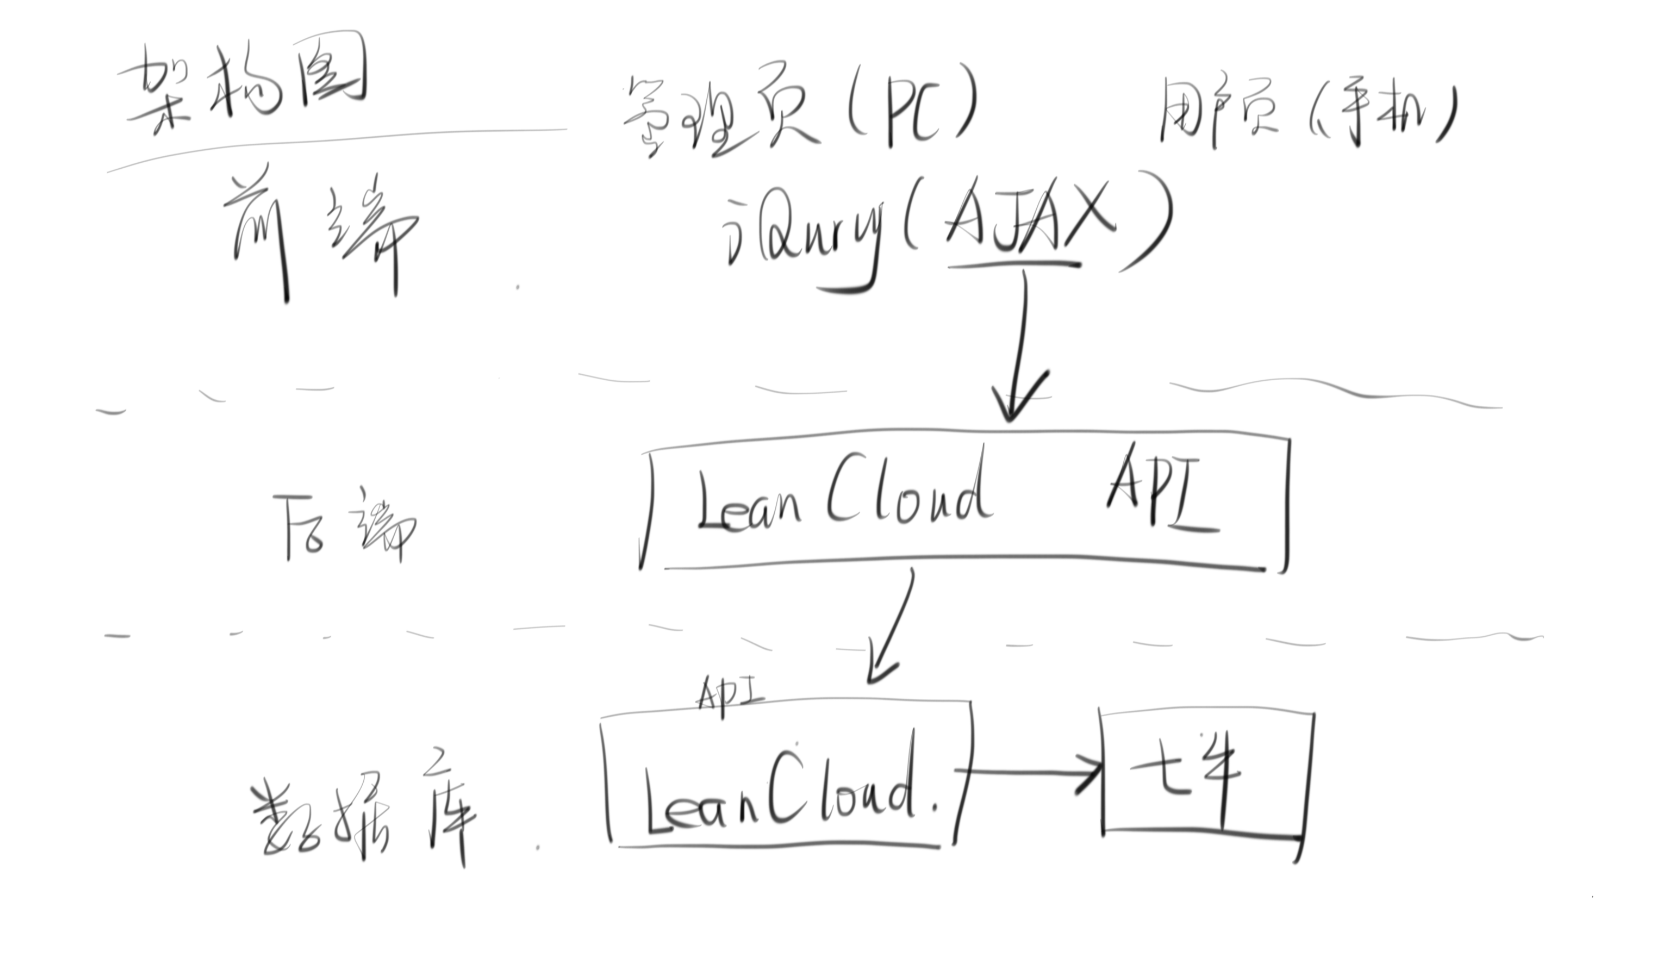 架构图
管理页(PC) 用户页(手机)
前端 jQury(AJAX)
后端 LeanCloud API
API
数据库 LeanCloud. 七牛